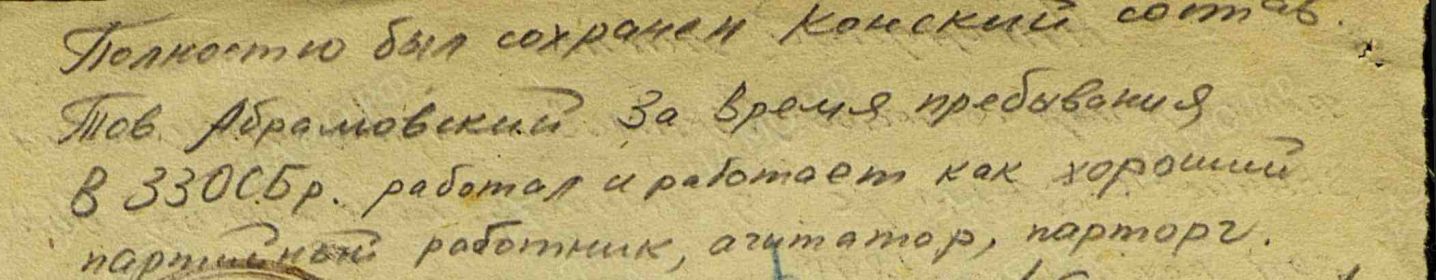 Полностью был сохранен конский состав.
Тов Абрамовский за время пребывания
в 33ОСБр. работал и работает как хороший
партийный работник, агитатор, парторг.